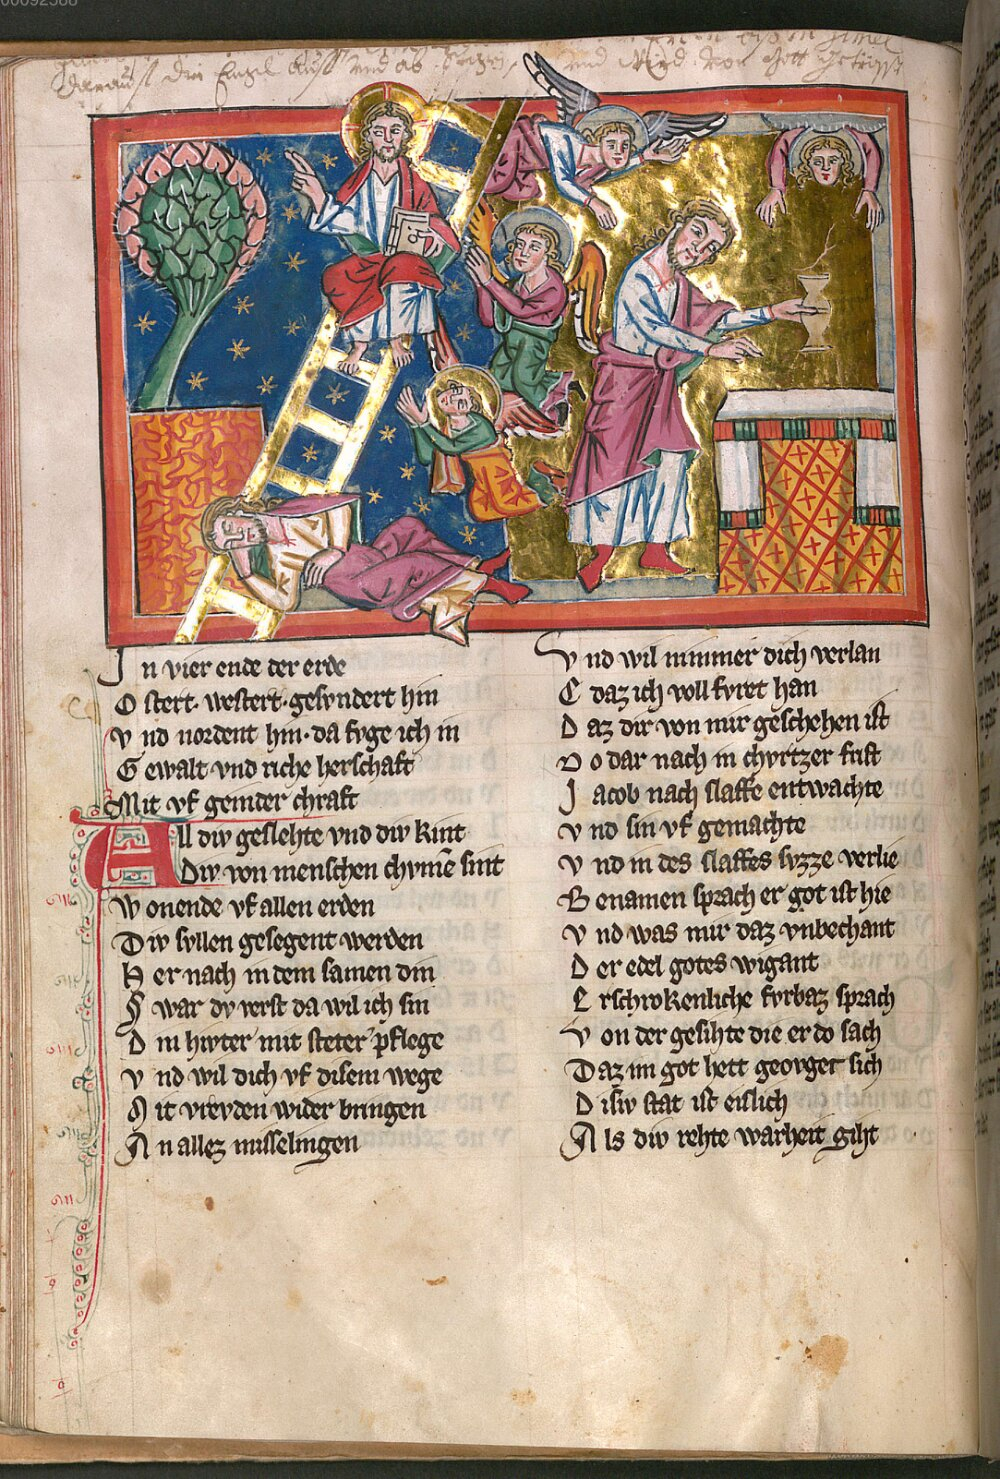 00092588
Darauff die Engel auff und ab
und vor Gott
In vier ende der erde
Ostert. westert. gesvndert hin
vnd nordent hin. da fvge ich in
Gewalt vnd riche herschaft
Mit vf gernder chraft
All div geslehte vnd div kint
Div von menschen chvmē sint
Wonende vf allen erden
Div svllen gesegent werden
Her nach in dem samen din
Swar dv verst da wil ich sin
Din hvter mit steter pflege
vnd wil dich vf disem wege
Mit vrevden wider bringen
An allez misselingen
Vnd wil nimmer dich verlan
E daz ich voll fvret han
Daz dir von mir geschehen ist
Do dar nach in chvrtzer frist
Jacob nach slaffe entwachte
vnd sin vf gemachte
vnd in des slaffes svzze verlie
Benamen sprach er got ist hie
vnd was mir daz vnbechant
Der edel gotes wigant
Erschrokenliche fvrbaz sprach
von der gesihte die er do sach
Daz im got hett georget sich
Disiv stat ist eislich
Als div rehte warheit giht